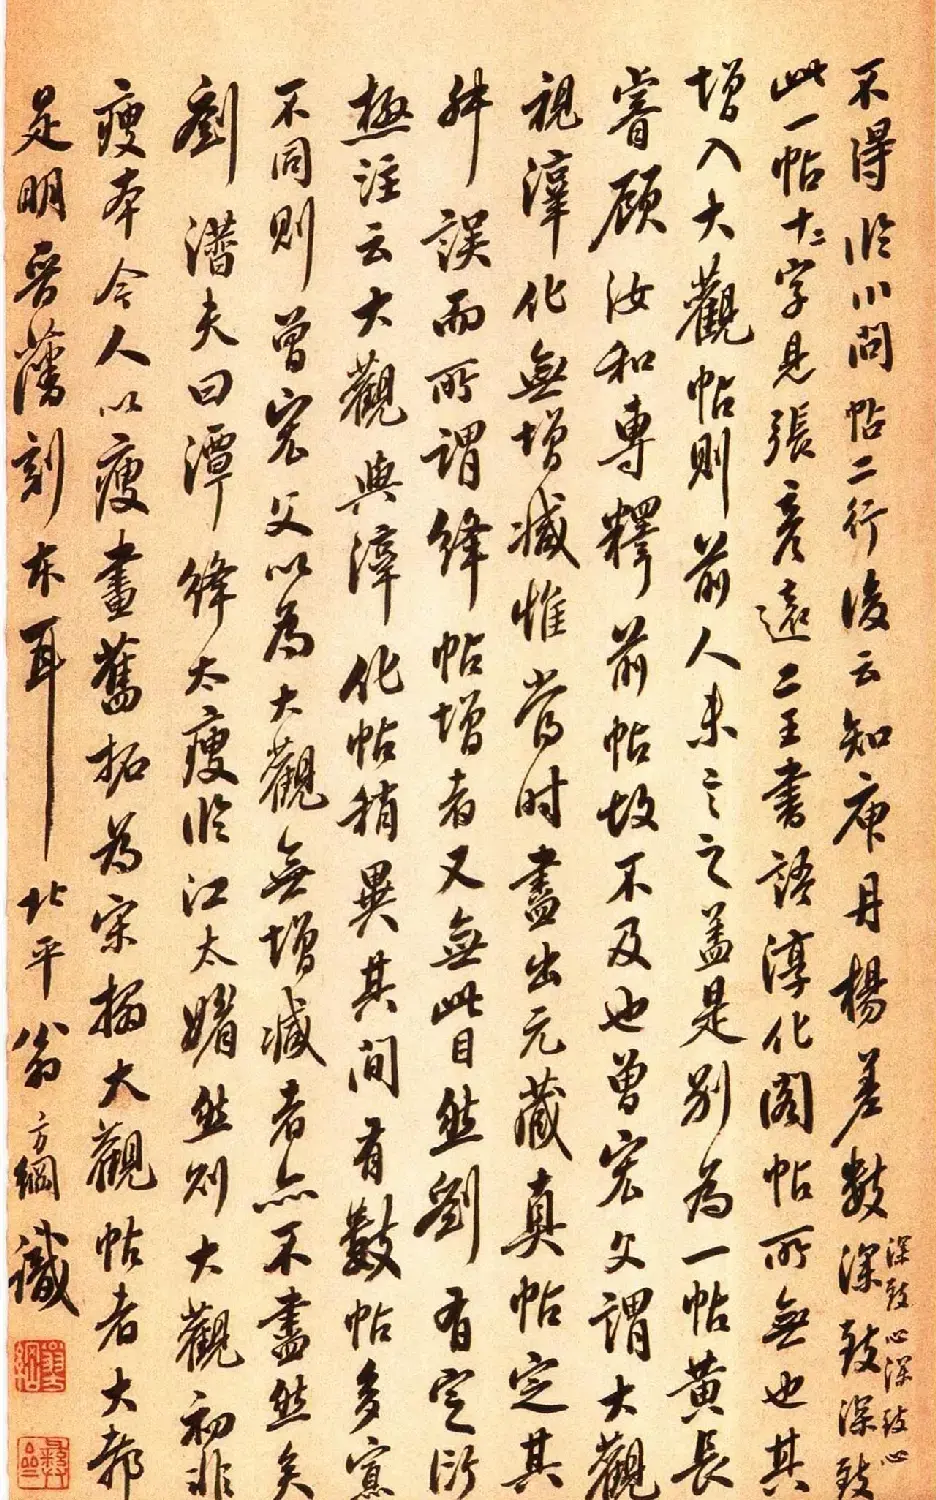 不得臨川問帖二行後云知庾丹楊差數深致深致
深致心深致心
此一帖十二字見張彥遠二王書語淳化閣帖所無也其
增入大觀帖則前人未言之蓋是別為一帖黃長
睿顧汝和專釋前帖故不及也曾宏父謂大觀
視淳化無增減惟當時盡出元藏真帖定其
舛誤而所謂絳帖增者又無此目然劉有定衍
極注云大觀與淳化帖稍異其間有數帖多寡
不同則曾宏父以為大觀無增減者亦不盡然矣
劉潛夫曰潭絳太瘦臨江太媚然則大觀初非
瘦本今人以瘦畫舊拓為宋搨大觀帖者大都
是明晉藩刻本耳 北平翁方綱識